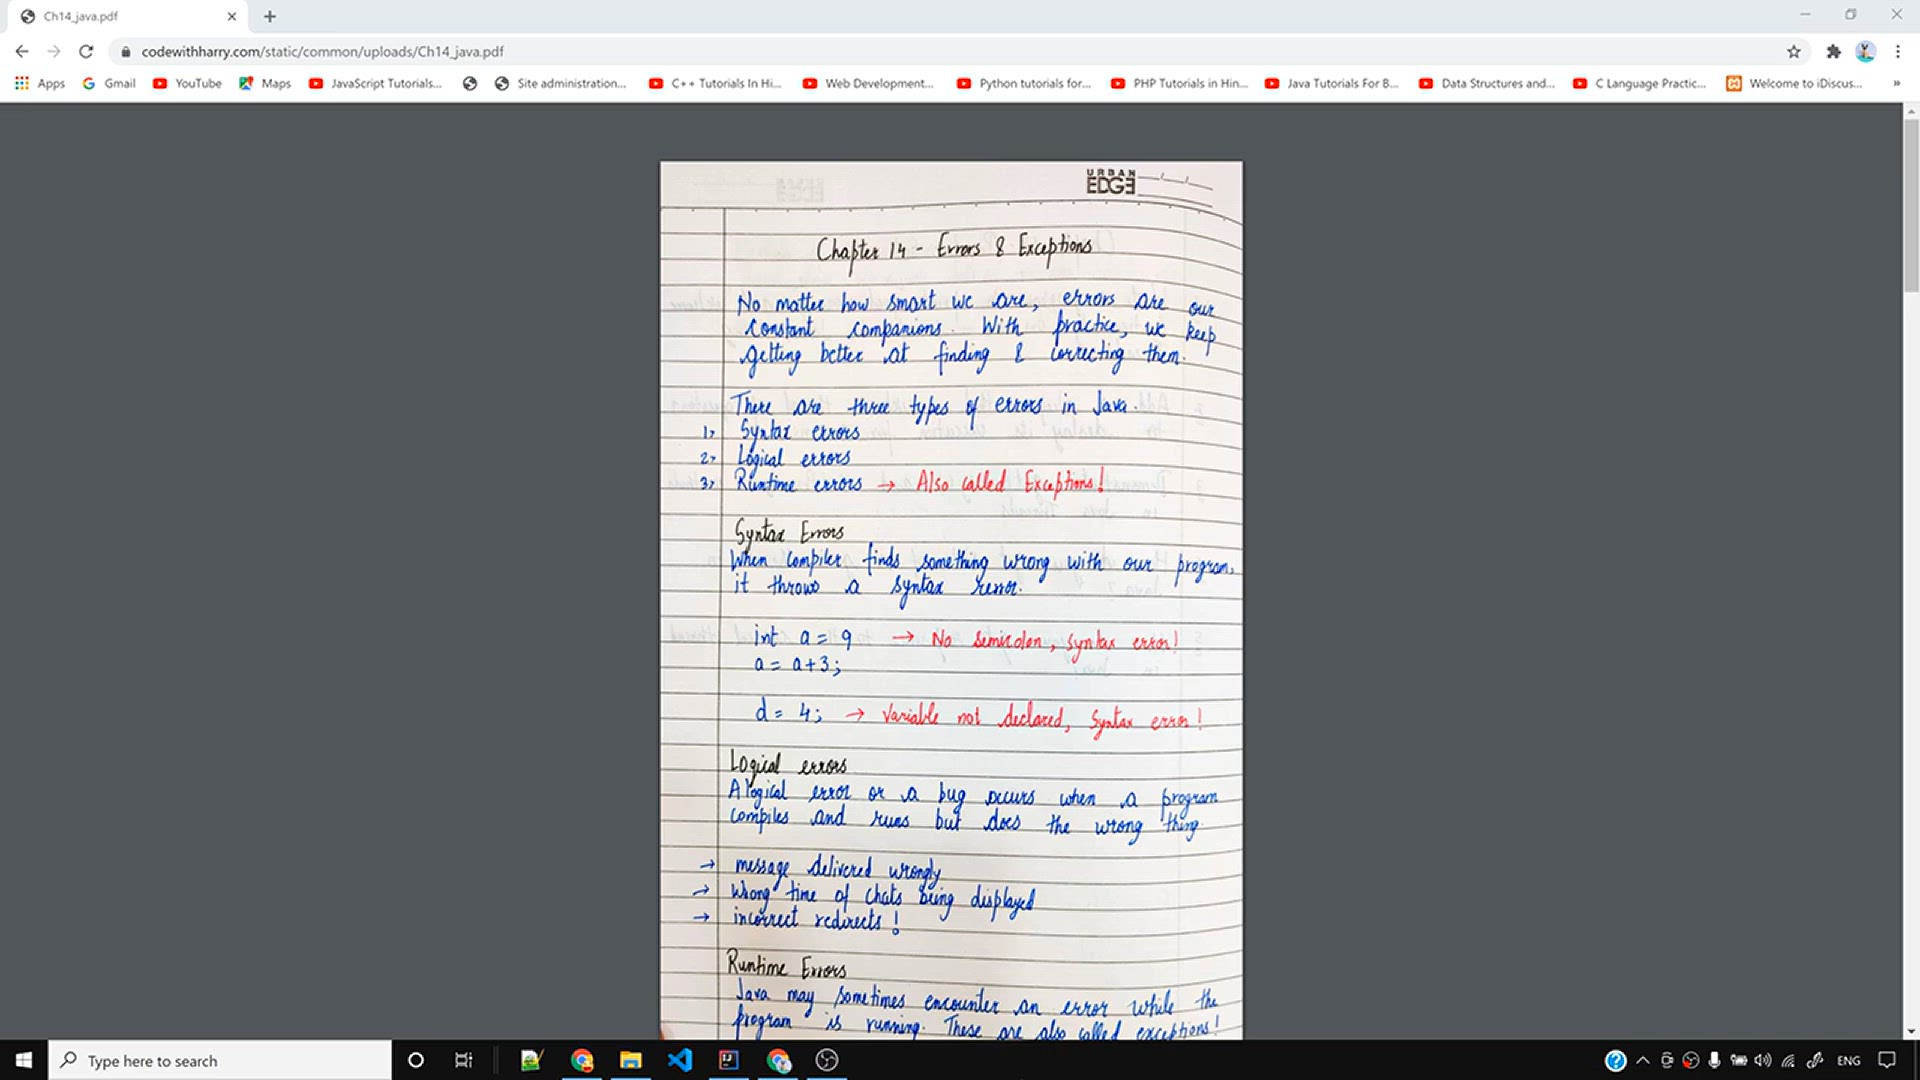 Ch14_java.pdf
codewithharry.com/static/common/uploads/Ch14_java.pdf
Apps Gmail YouTube Maps JavaScript Tutorials... Site administration... C++ Tutorials In Hi... Web Development... Python tutorials for... PHP Tutorials in Hin... Java Tutorials For B... Data Structures and... C Language Practic... Welcome to iDiscus... »
URBAN
EDGE
Chapter 14 - Errors & Exceptions
No matter how smart we are, errors are our
constant companions. With practice, we keep
getting better at finding & correcting them.
There are three types of errors in Java.
1> Syntax errors
2> Logical errors
3> Runtime errors → Also called Exceptions!
Syntax Errors
When compiler finds something wrong with our program,
it throws a syntax error.
int a = 9 → No semicolon, syntax error!
a = a+3;
d = 4; → Variable not declared, syntax error!
Logical errors
A logical error or a bug occurs when a program
compiles and runs but does the wrong thing.
→ message delivered wrongly
→ Wrong time of chats being displayed
→ incorrect redirects!
Runtime Errors
Java may sometimes encounter an error while the
program is running. These are also called exceptions!
Type here to search
ENG